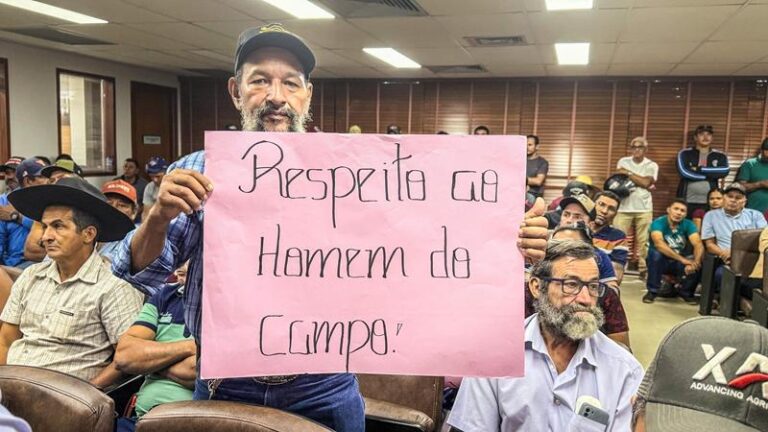 Respeito ao
Homem do
Campo!
XA
ADVANCING AGRI